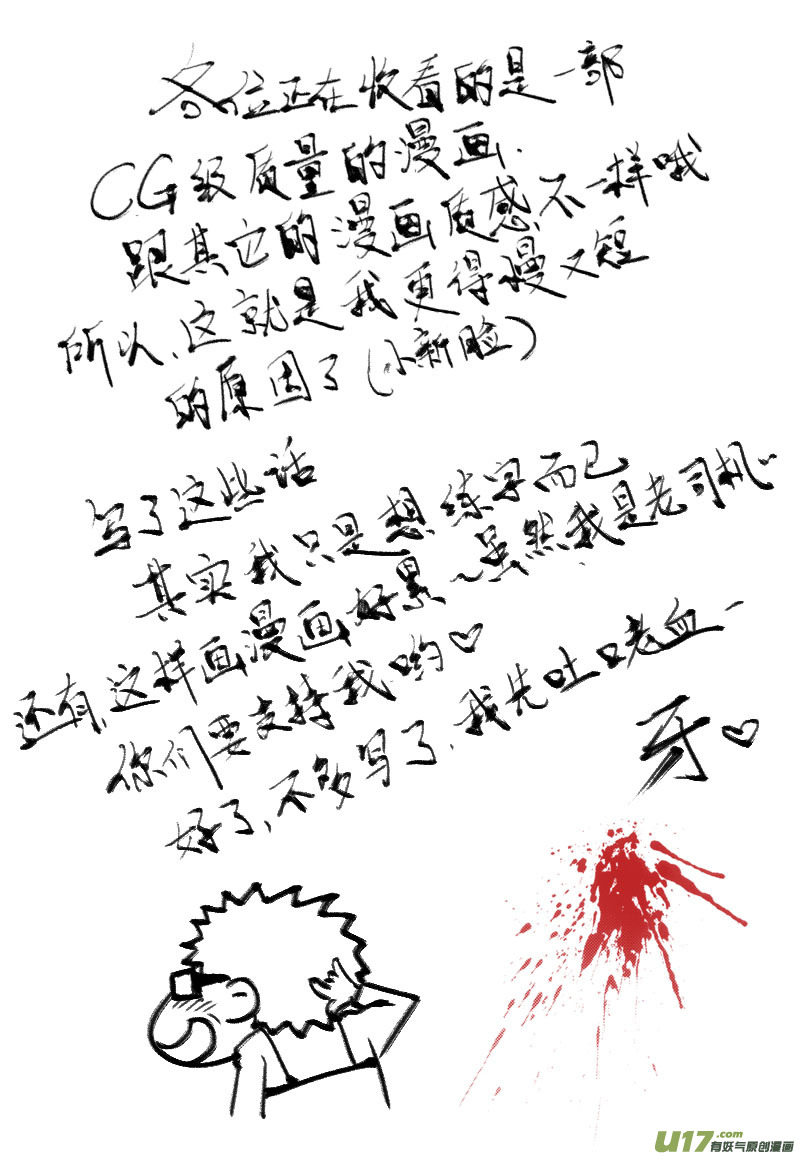 各位正在收看的是一部
CG级质量的漫画、
跟其它的漫画质感不一样哦
所以、这就是我更得慢又短
的原因了(小新脸)
写了这些话
其实我只是想练字而已
还有、这样画漫画好累~虽然我是老司机~
你们要支持我哟♡
好了、不多写了、我先吐口老血、
牙♡
U17.com
有妖气原创漫画